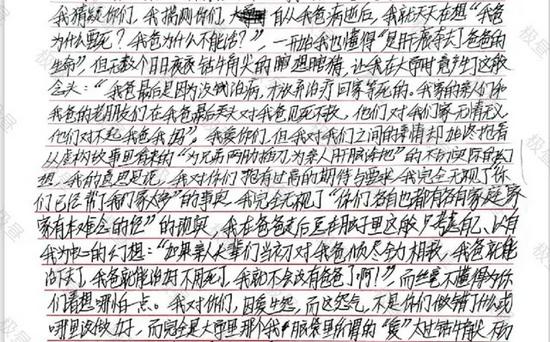 我猜疑你们，我揣测你们，大学自从我爸病逝后，我就天天在想“我爸
为什么要死？我爸为什么不能活？”，一开始我也懂得“是肝癌夺去了爸爸的
生命”，但无数个日日夜夜钻牛角尖的瞎想瞎猜，让我在大学时竟产生了这般
念头：“我爸最后是因为没钱治病，才放弃治疗回家等死的。我家的亲人们和
我爸的老朋友们在我爸最后关头对我爸见死不救，他们对我们家无情无义
他们对不起我爸我妈”。我爱你们，但我对我们之间的亲情却始终抱着
从虚构故事里看来的“为兄弟两肋插刀为亲人肝脑涂地”的不切实际的幻
想，我的意思是说，我对你们抱有过高的期待与要求，我完全无视了“你们
已经帮了我们家太多”的事实，我完全无视了“你们各自也都有各自家庭，家
家有本难念的经”的现实，我在爸爸走后总在脑子里这般只考虑自己、以自
我为中心的幻想：“如果亲人长辈们当初对我爸倾尽全力相救，我爸就能
活下去了，我爸就能治好不用死了，我就不会没有爸爸了啊！”而丝毫不懂得为你
们着想哪怕一点。我对你们，因爱生怨，而这怨气，不是你们做错了什么或
哪里没做好，而完全是大学里那个我脑袋里所谓的“爱”太过钻牛角尖、不切